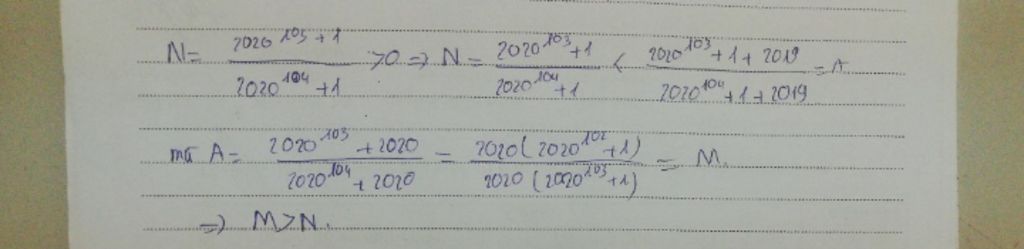 N = (2020^103 + 1)/(2020^104 + 1) > 0 => N = (2020^103 + 1)/(2020^104 + 1) < (2020^103 + 1 + 2019)/(2020^104 + 1 + 2019) = A
mà A = (2020^103 + 2020)/(2020^104 + 2020) = 2020(2020^102 + 1)/2020(2020^103 + 1) = M.
=> M > N.